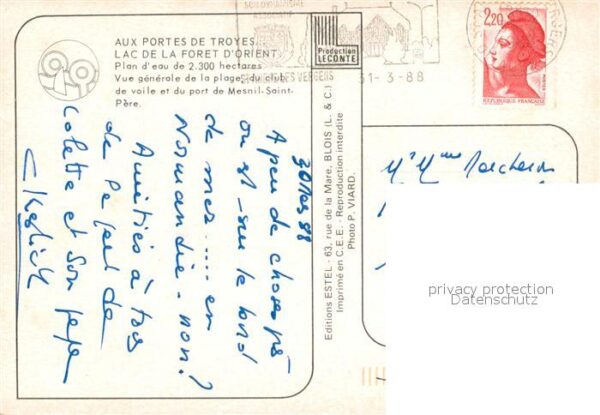 AUX PORTES DE TROYES
LAC DE LA FORET D'ORIENT
Plan d'eau de 2.300 hectares
Vue générale de la plage, du club
de voile et du port de Mesnil-Saint-
Père.
Production
LECONTE
31-3-88
2,20
REPUBLIQUE FRANÇAISE
30 Mars 88
A peu de choses près
on est-sur le bord
de mer..... en
Normandie-non?
Amitiés à tous
de
Colette et son
Editions ESTEL - 63, rue de la Mare, BLOIS (L. & C.)
Imprimé en C.E.E. - Reproduction interdite
Photo P. VIARD.
privacy protection
Datenschutz